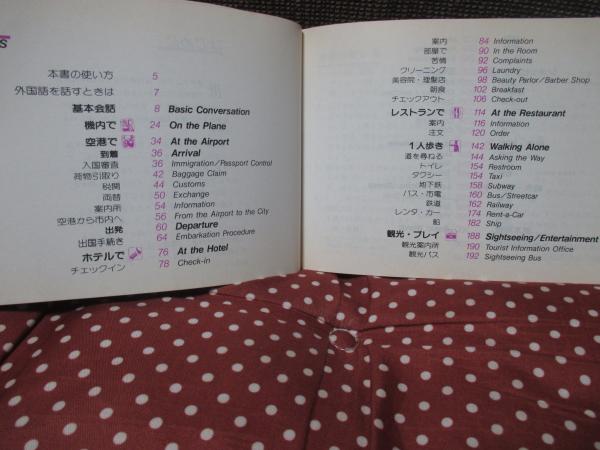 S
本書の使い方 5
外国語を話すときは 7
基本会話 8 Basic Conversation
機内で 24 On the Plane
空港で 34 At the Airport
到着 36 Arrival
入国審査 36 Immigration/Passport Control
荷物引取り 42 Baggage Claim
税関 44 Customs
両替 50 Exchange
案内所 54 Information
空港から市内へ 56 From the Airport to the City
出発 60 Departure
出国手続き 64 Embarkation Procedure
ホテルで 76 At the Hotel
チェックイン 78 Check-in
案内 84 Information
部屋で 90 In the Room
苦情 92 Complaints
クリーニング 96 Laundry
美容院・理髪店 98 Beauty Parlor/Barber Shop
朝食 102 Breakfast
チェックアウト 106 Check-out
レストランで 114 At the Restaurant
案内 116 Information
注文 120 Order
1人歩き 142 Walking Alone
道を尋ねる 144 Asking the Way
トイレ 154 Restroom
タクシー 154 Taxi
地下鉄 158 Subway
バス・市電 160 Bus/Streetcar
鉄道 162 Railway
レンタ・カー 174 Rent-a-Car
船 182 Ship
観光・プレイ 188 Sightseeing/Entertainment
観光案内所 190 Tourist Information Office
観光バス 192 Sightseeing Bus